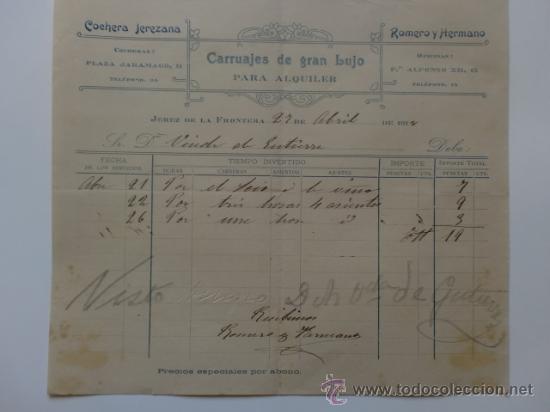 Cochera Jerezana
COCHERAS:
PLAZA JARAMAGO, 11
TELÉFONO.
Carruajes de gran Lujo
PARA ALQUILER
Romero y Hermano
OFICINAS:
P.ª ALFONSO XII,
TELÉFONO.
JEREZ DE LA FRONTERA 27 DE Abril DE
Sr. D. Viuda de Gutierrez Debe:
FECHA DE LOS SERVICIOS TIEMPO INVERTIDO IMPORTE IMPORTE TOTAL
HORAS CARRERAS ASIENTOS AJUSTES PESETAS CTS. PESETAS CTS.
Abr 21 Por el 7
22 Por tres horas 4 asientos 9
26 Por una hora 3
19
Visto Vda de Gutierrez
Recibimos
Romero y Hermano
Precios especiales por abono.
todocoleccion
www.todocoleccion.net